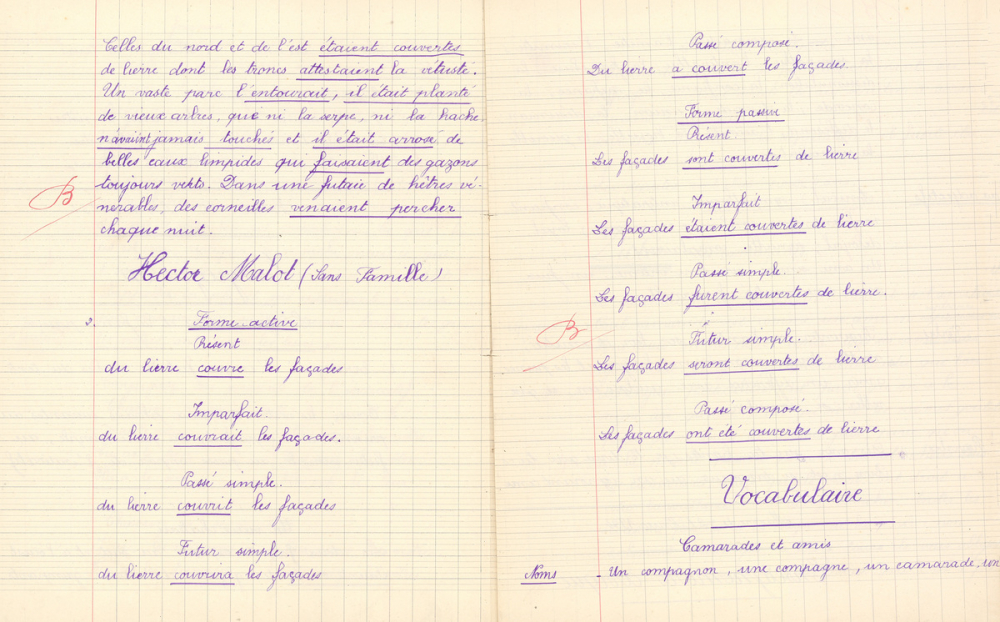 Celles du nord et de l'est étaient couvertes
de lierre dont les troncs attestaient la vétusté.
Un vaste parc l'entourait, il était planté
de vieux arbres, que ni la serpe, ni la hache
n'avaient jamais touchés et il était arrosé de
belles eaux limpides qui faisaient des gazons
toujours verts. Dans une futaie de hêtres vé-
nérables, des corneilles venaient percher
chaque nuit.
B
Hector Malot (Sans Famille)
2.
Forme active
Présent
du lierre couvre les façades
Imparfait.
du lierre couvrait les façades.
Passé simple.
du lierre couvrit les façades
Futur simple.
du lierre couvrira les façades
Passé composé.
Du lierre a couvert les façades.
Forme passive
Présent
Les façades sont couvertes de lierre
Imparfait
Les façades étaient couvertes de lierre
Passé simple.
Les façades furent couvertes de lierre.
B
Futur simple.
Les façades seront couvertes de lierre
Passé composé.
Les façades ont été couvertes de lierre
Vocabulaire
Camarades et amis
Noms - Un compagnon, une compagne, un camarade, un